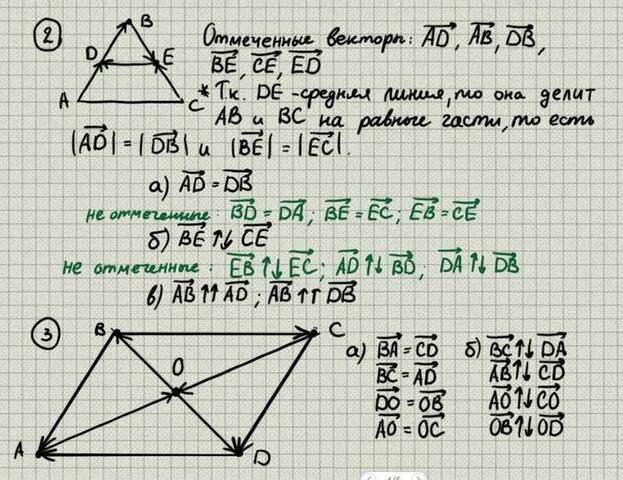 2
B
D E
A C
Отмеченные векторы: AD, AB, DB,
BE, CE, ED
* Т.к. DE - средняя линия, то она делит
AB и BC на равные части, то есть
|AD| = |DB| и |BE| = |EC|.
а) AD = DB
не отмеченные: BD = DA; BE = EC; EB = CE
б) BE ↑↓ CE
не отмеченные: EB ↑↓ EC; AD ↑↓ BD; DA ↑↓ DB
в) AB ↑↑ AD; AB ↑↑ DB
3
B C
O
A D
а) BA = CD
BC = AD
DO = OB
AO = OC
б) BC ↑↓ DA
AB ↑↓ CD
AO ↑↓ CO
OB ↑↓ OD